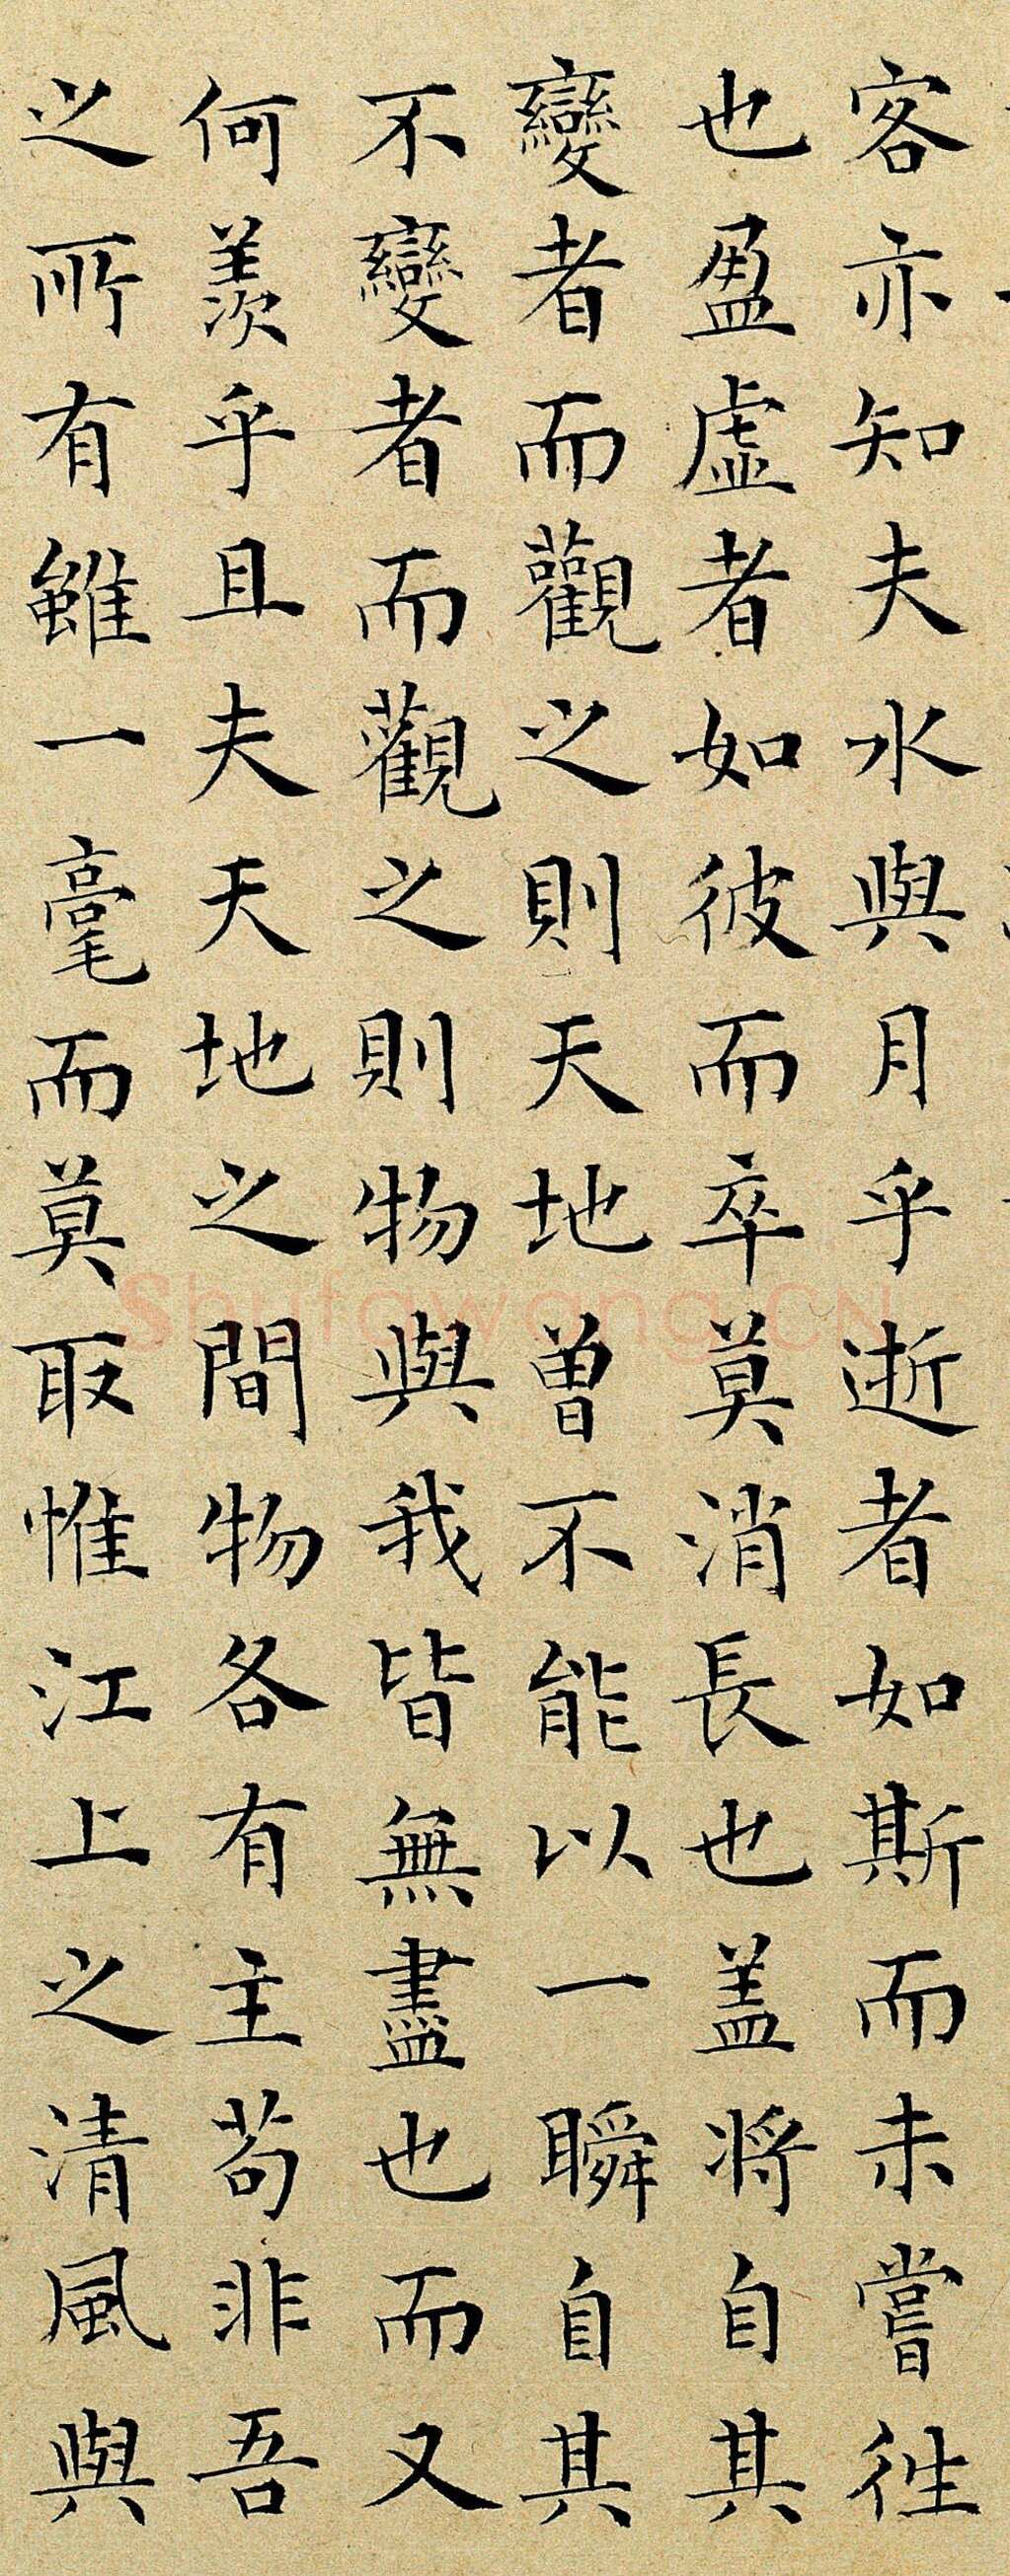 客亦知夫水與月乎逝者如斯而未嘗往
也盈虛者如彼而卒莫消長也盖将自其
變者而觀之則天地曾不能以一瞬自其
不變者而觀之則物與我皆無盡也而又
何羨乎且夫天地之間物各有主苟非吾
之所有雖一毫而莫取惟江上之清風與
Shufawang.CN